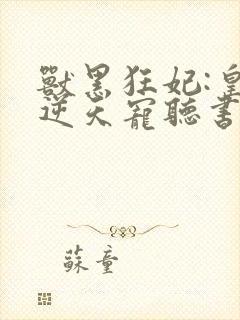 獸黑狂妃:皇
逆天寵聽書
蘇童